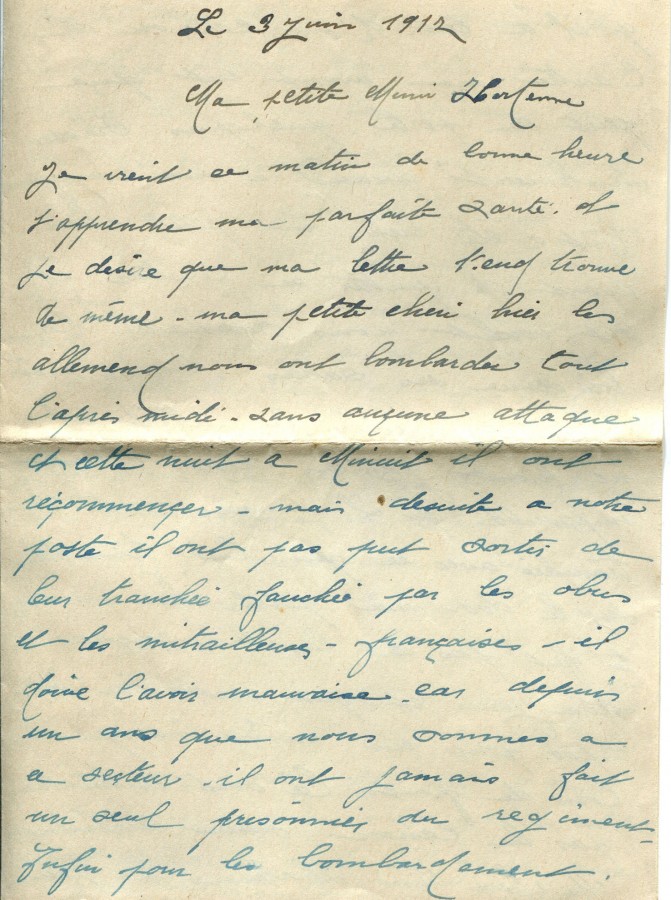 Le 3 Juin 1917
Ma petite Mimi Hortense
Je vient ce matin de bonne heure
t'apprendre ma parfaite santé. et
je desire que ma lettre t'en trouve
de même - ma petite cheri hier les
allemend nous ont bombarder tout
l'après midi - sans auçune attaque
et cette nuit a Minuit il ont
reçommençer - mais desuite a notre
poste il ont pas put sortir de
leur tranchée fauchée par les obus
et les mitrailleuses - françaises - il
doive l'avoir mauvaise car depuis
un ans que nous sommes a
ce secteur - il ont jamais fait
un seul prisonnier du regiment -
Enfin pour les bombardement.